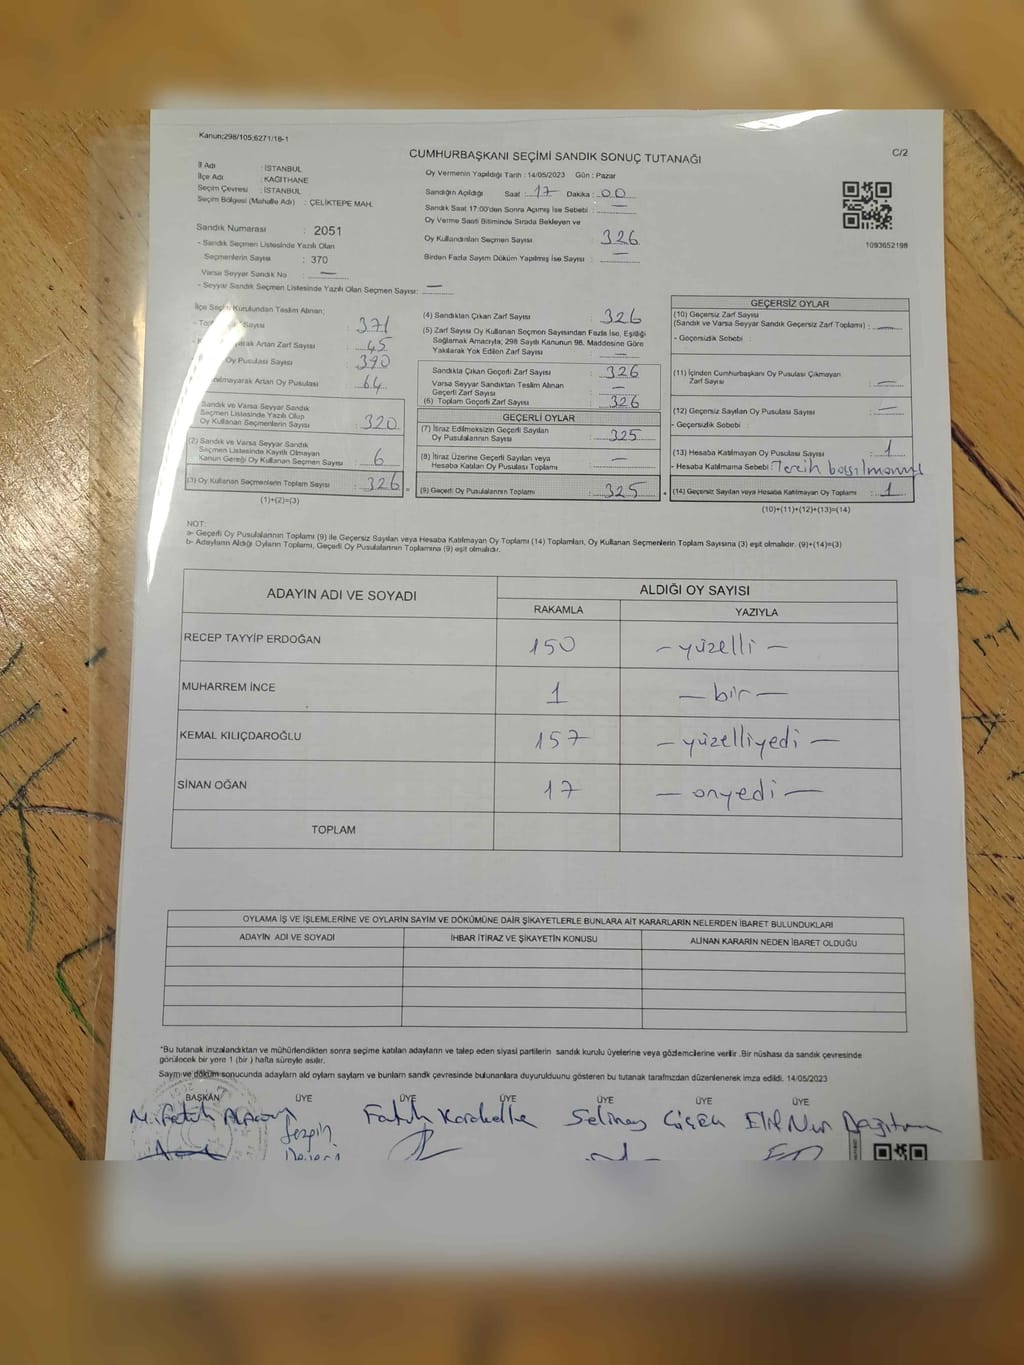 Kanun;298/105;6271/18-1
C/2
CUMHURBAŞKANI SEÇİMİ SANDIK SONUÇ TUTANAĞI
İl Adı : İSTANBUL
İlçe Adı : KAĞITHANE
Seçim Çevresi : İSTANBUL
Seçim Bölgesi (Mahalle Adı) : ÇELİKTEPE MAH.
Sandık Numarası : 2051
- Sandık Seçmen Listesinde Yazılı Olan
Seçmenlerin Sayısı : 370
Varsa Seyyar Sandık No : —
- Seyyar Sandık Seçmen Listesinde Yazılı Olan Seçmen Sayısı: —
Oy Vermenin Yapıldığı Tarih : 14/05/2023 Gün : Pazar
Sandığın Açıldığı Saat : 17 Dakika : 00
Sandık Saat 17:00'den Sonra Açımış İse Sebebi : —
Oy Verme Saati Bitiminde Sırada Bekleyen ve
Oy Kullandırılan Seçmen Sayısı : 326
Birden Fazla Sayım Döküm Yapılmış İse Sayısı : —
1093652198
İlçe Seçim Kurulundan Teslim Alınan;
Sayısı : 371
Artan Zarf Sayısı : 45
Oy Pusulası Sayısı : 390
Artan Oy Pusulası : 64
Sandık ve Varsa Seyyar Sandık
Seçmen Listesinde Yazılı Olup
Oy Kullanan Seçmenlerin Sayısı : 320
(2) Sandık ve Varsa Seyyar Sandık
Seçmen Listesinde Kayıtlı Olmayan
Kanun Gereği Oy Kullanan Seçmen Sayısı : 6
(3) Oy Kullanan Seçmenlerin Toplam Sayısı : 326
(1)+(2)=(3)
(4) Sandıktan Çıkan Zarf Sayısı : 326
(5) Zarf Sayısı Oy Kullanan Seçmen Sayısından Fazla İse, Eşitliği
Sağlamak Amacıyla; 298 Sayılı Kanunun 98. Maddesine Göre
Yakılarak Yok Edilen Zarf Sayısı : —
Sandıkta Çıkan Geçerli Zarf Sayısı : 326
Varsa Seyyar Sandıktan Teslim Alınan
Geçerli Zarf Sayısı : —
(6) Toplam Geçerli Zarf Sayısı : 326
GEÇERLİ OYLAR
(7) İtiraz Edilmeksizin Geçerli Sayılan
Oy Pusulalarının Sayısı : 325
(8) İtiraz Üzerine Geçerli Sayılan veya
Hesaba Katılan Oy Pusulası Toplamı : —
(9) Geçerli Oy Pusulalarının Toplamı : 325
GEÇERSİZ OYLAR
(10) Geçersiz Zarf Sayısı
(Sandık ve Varsa Seyyar Sandık Geçersiz Zarf Toplamı) : —
- Geçersizlik Sebebi :
(11) İçinden Cumhurbaşkanı Oy Pusulası Çıkmayan
Zarf Sayısı : —
(12) Geçersiz Sayılan Oy Pusulası Sayısı : —
- Geçersizlik Sebebi :
(13) Hesaba Katılmayan Oy Pusulası Sayısı : 1
- Hesaba Katılmama Sebebi : Tercih basılmamış
(14) Geçersiz Sayılan veya Hesaba Katılmayan Oy Toplamı : 1
(10)+(11)+(12)+(13)=(14)
NOT:
a- Geçerli Oy Pusulalarının Toplamı (9) ile Geçersiz Sayılan veya Hesaba Katılmayan Oy Toplamı (14) Toplamları, Oy Kullanan Seçmenlerin Toplam Sayısına (3) eşit olmalıdır. (9)+(14)=(3)
b- Adayların Aldığı Oyların Toplamı, Geçerli Oy Pusulalarının Toplamına (9) eşit olmalıdır.
ADAYIN ADI VE SOYADI ALDIĞI OY SAYISI
RAKAMLA YAZIYLA
RECEP TAYYİP ERDOĞAN 150 — yüzelli —
MUHARREM İNCE 1 — bir —
KEMAL KILIÇDAROĞLU 157 — yüzelliyedi —
SİNAN OĞAN 17 — onyedi —
TOPLAM
OYLAMA İŞ VE İŞLEMLERİNE VE OYLARIN SAYIM VE DÖKÜMÜNE DAİR ŞİKAYETLERLE BUNLARA AİT KARARLARIN NELERDEN İBARET BULUNDUKLARI
ADAYIN ADI VE SOYADI İHBAR İTİRAZ VE ŞİKAYETİN KONUSU ALINAN KARARIN NEDEN İBARET OLDUĞU
*Bu tutanak imzalandıktan ve mühürlendikten sonra seçime katılan adayların ve talep eden siyasi partilerin sandık kurulu üyelerine veya gözlemcilerine verilir .Bir nüshası da sandık çevresinde
görülecek bir yere 1 (bir ) hafta süreyle asılır.
Sayım ve döküm sonucunda adayların aldı oyların sayların ve bunların sandk çevresinde bulunanlara duyurulduunu gösteren bu tutanak tarafmzdan düzenlenerek imza edildi. 14/05/2023
BAŞKAN ÜYE ÜYE ÜYE ÜYE ÜYE
Fatih Karakelle Selinay Çiçek Elif Nur